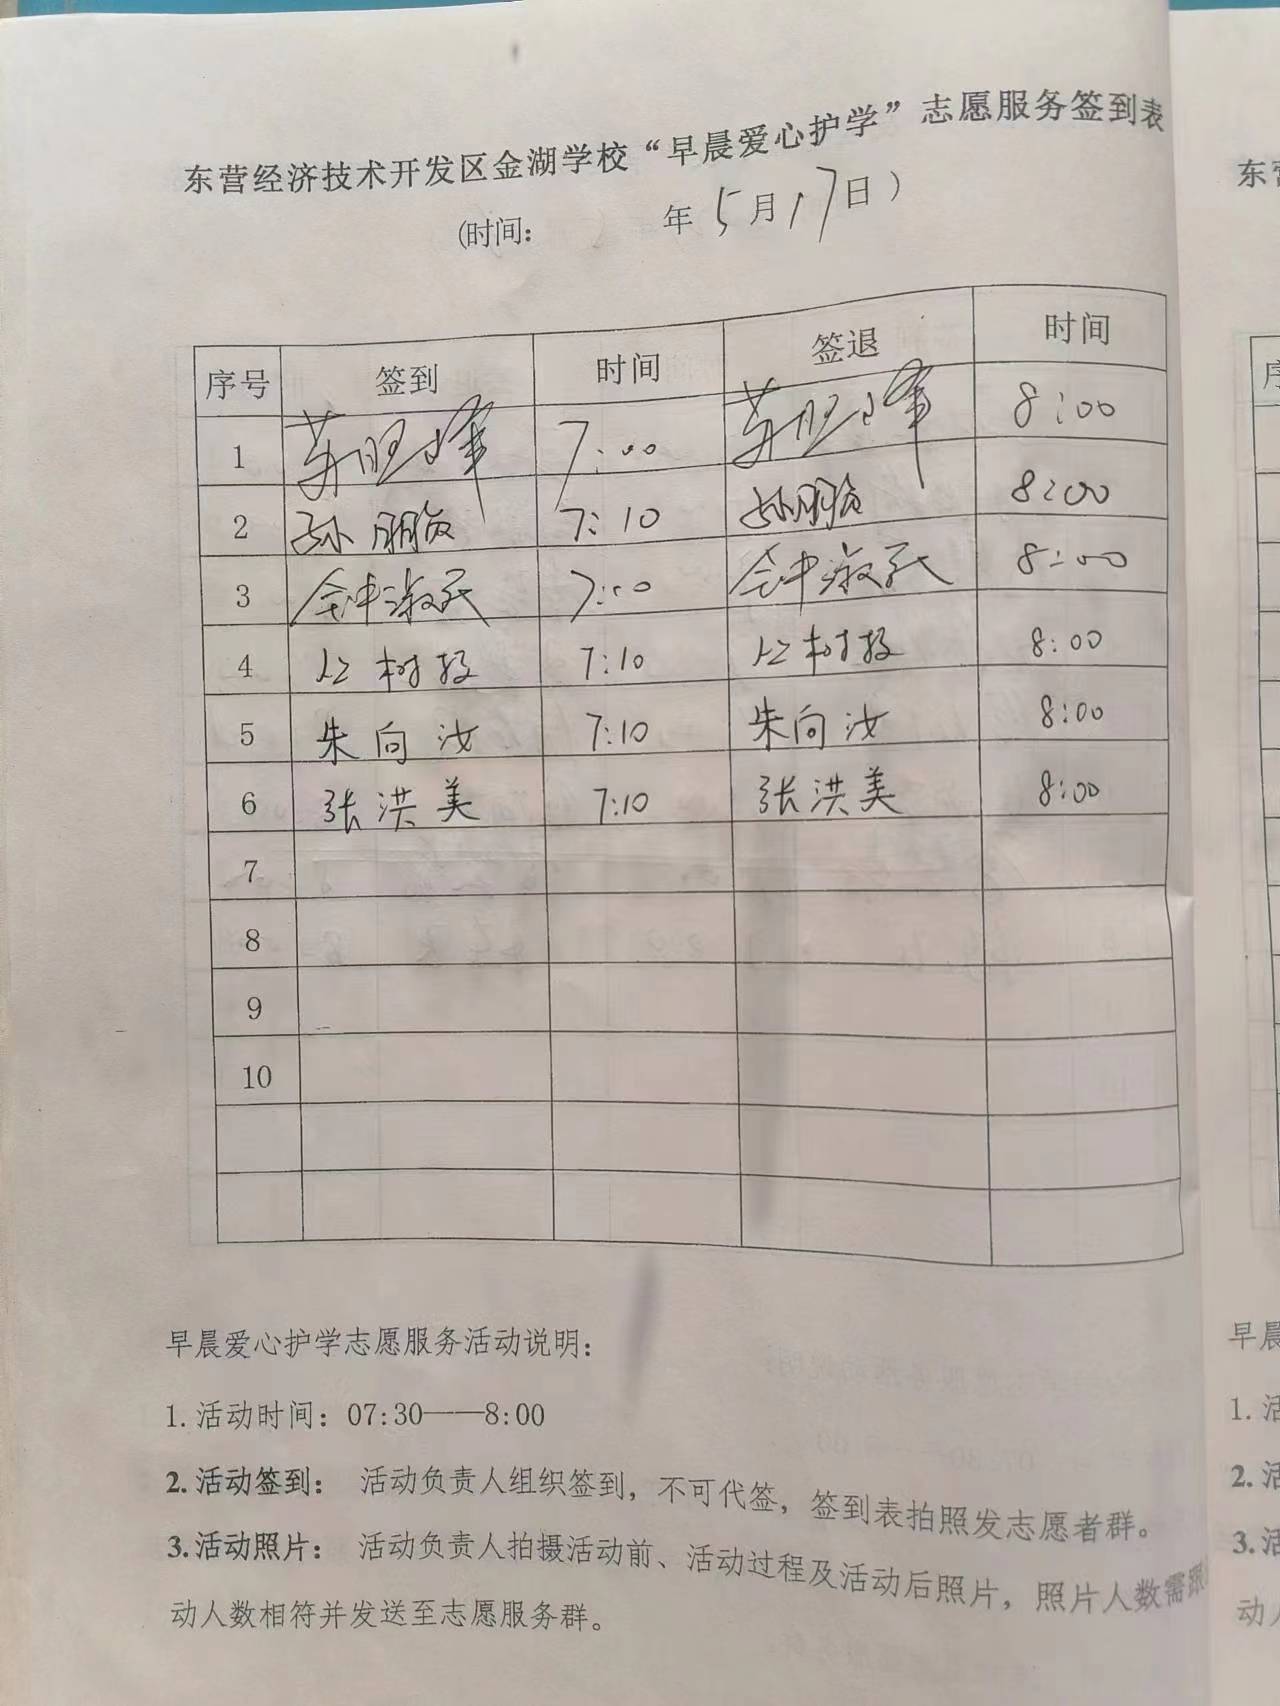 东营经济技术开发区金湖学校“早晨爱心护学”志愿服务签到表
(时间: 年5月17日)
序号 签到 时间 签退 时间
1 苏旺峰 7:00 苏旺峰 8:00
2 孙朋 7:10 孙朋 8:00
3 7:00 8:00
4 树 7:10 树 8:00
5 朱向汝 7:10 朱向汝 8:00
6 张洪美 7:10 张洪美 8:00
7
8
9
10
早晨爱心护学志愿服务活动说明:
1.活动时间: 07:30——8:00
2.活动签到: 活动负责人组织签到, 不可代签, 签到表拍照发志愿者群。
3.活动照片: 活动负责人拍摄活动前、活动过程及活动后照片, 照片人数需跟
动人数相符并发送至志愿服务群。
东
序
早晨
1.活
2.活
3.活
动人